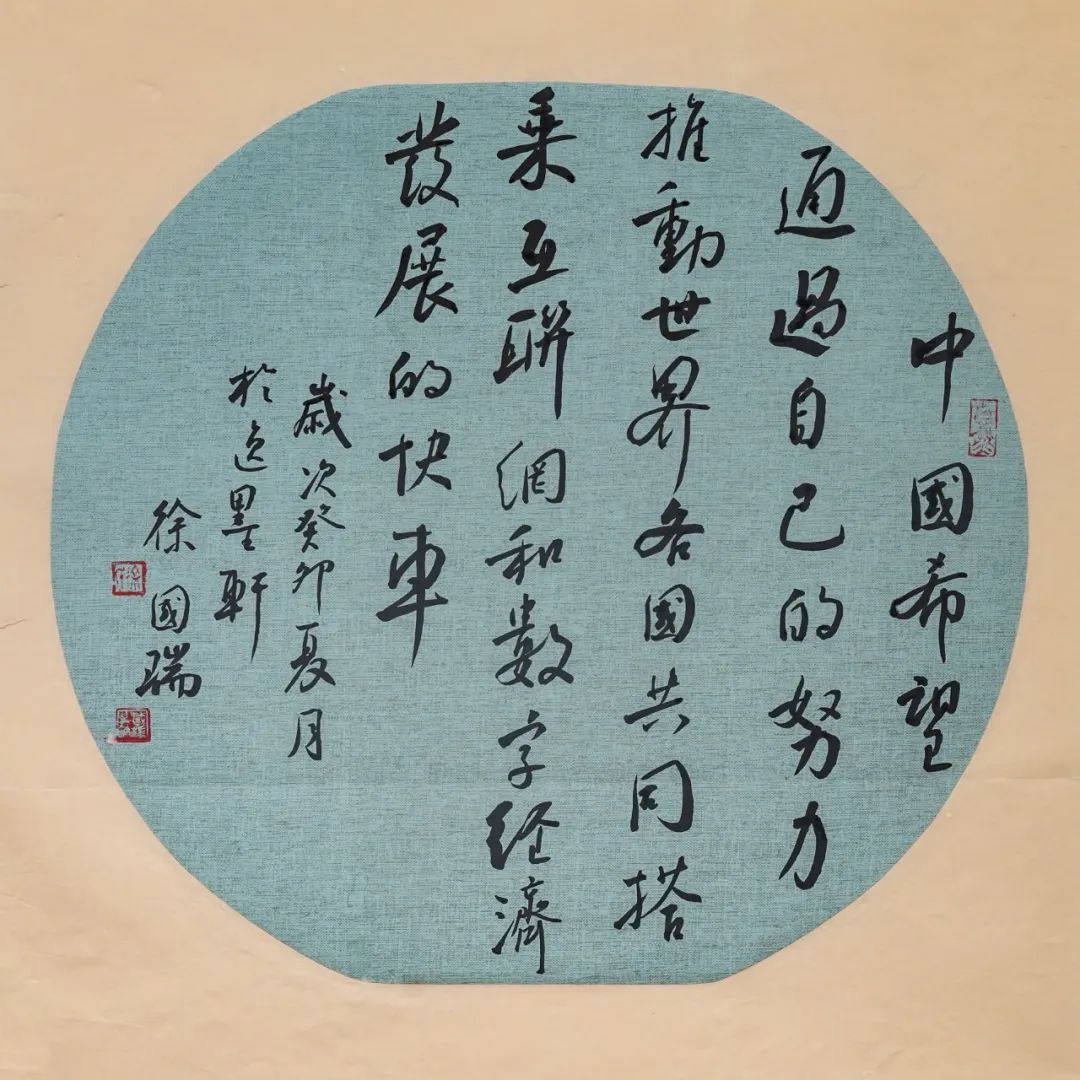 中國希望
通過自己的努力
推動世界各國共同搭
乘互聯網和數字經濟
發展的快車
歲次癸卯夏月
於逸墨軒
徐國瑞